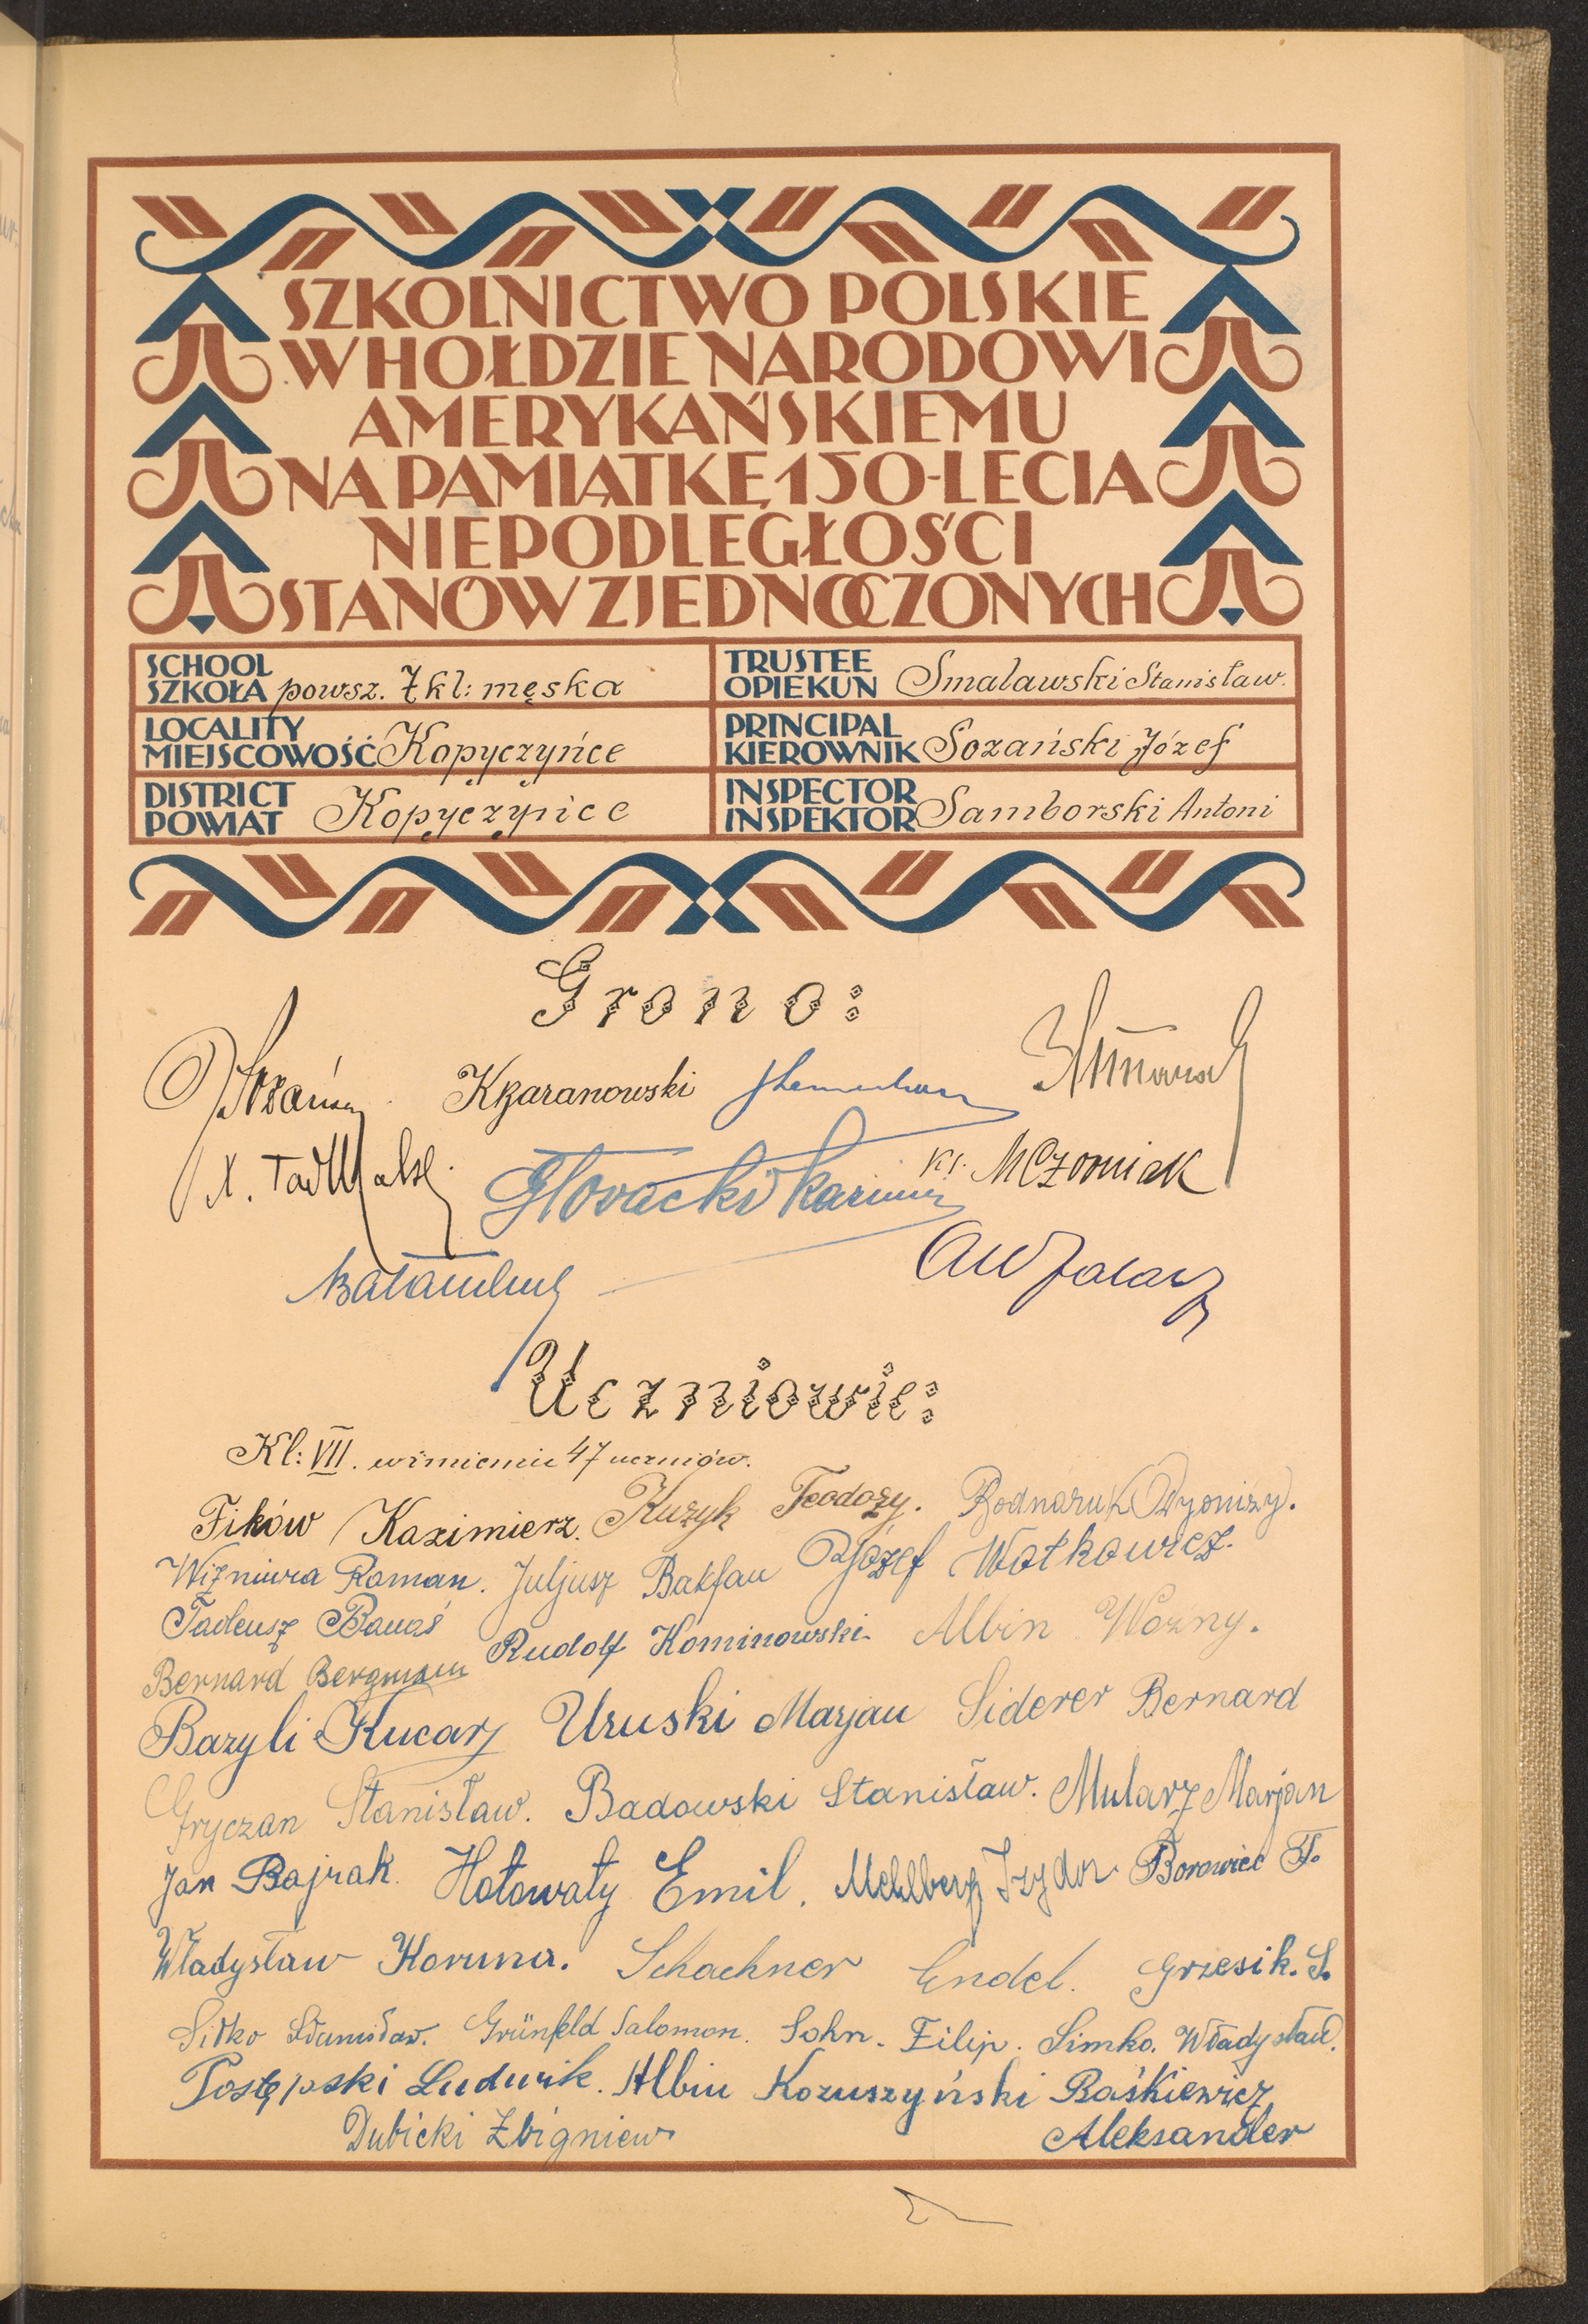 SZKOLNICTWO POLSKIE
W HOŁDZIE NARODOWI
AMERYKAŃSKIEMU
NA PAMIĄTKĘ 150-LECIA
NIEPODLEGŁOŚCI
STANÓW ZJEDNOCZONYCH
SCHOOL
SZKOŁA powsz. 7 kl: męska
TRUSTEE
OPIEKUN Smalawski Stanisław.
LOCALITY
MIEJSCOWOŚĆ Kopyczyńce
PRINCIPAL
KIEROWNIK Sozański Józef
DISTRICT
POWIAT Kopyczyńce
INSPECTOR
INSPEKTOR Samborski Antoni
Grono:
KBaranowski
Głovacki Kazimierz
Uczniowie:
Kl: VII. w imieniu 47 uczniów.
Fików Kazimierz. Kuzyk Teodozy. Bodnaruk Dyonizy.
Wiśniura Roman. Juljusz Bakfau Józef Wołkowicz.
Tadeusz Banaś Rudolf Kominowski. Albin Woźny.
Bernard Bergmann
Bazyli Kucarz Uruski Marjan Siderer Bernard
Gryczan Stanisław. Badowski Stanisław. Mularz Marjan
Jan Bajrak. Hołowaty Emil. Mehlberg Izydor Borowiec F.
Władysław Koruna. Schachner Endel. Grzesik. S.
Sitko Stanisław. Grünfeld Salomon. Sohn. Filip. Simko. Władysław.
Postępski Ludwik. Albin Kozuszyński Baśkiewicz
Dubicki Zbigniew Aleksander